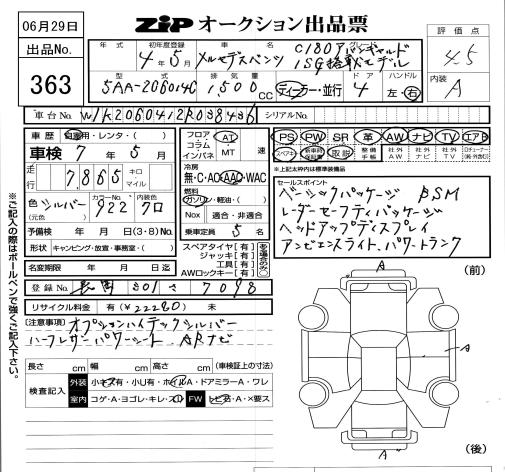 06月29日
ZIP オークション出品票
出品No.
363
年式 初年度登録 車名 グレード
4年5月 メルセデスベンツ C180アバンギャルド
ISG搭載モデル
評価点
4.5
内装
A
型式 排気量 ドア ハンドル
5AA-206041C 1,500cc ディーラー・並行 4 左・右
車台No. W1K2060412R038436 シリアルNo.
車歴 自家用・レンタ・( )
車検 7年5月
走行 7,865 キロ マイル
色 シルバー カラーNo. 922 内装 クロ
(元色)
予備検 年 月 日 (3・8) No.
形状 キャンピング・放宣・事務室・( )
名変期限 年 月 日迄
登録No. 301 さ 7098
リサイクル料金 有(¥22280) 未
フロア コラム インパネ AT MT 速
冷房
無・C・AC・AAC・WAC
燃料
ガソリン・軽油・( )
Nox 適合・非適合
乗車定員 5 名
スペアタイヤ[有]
ジャッキ[有]
工具[有]
AWロックキー[有]
PS PW SR 革 AW ナビ TV エアB
スペアキー 新車時保証書 取説 整備手帳 社外AW 社外ナビ 社外TV
*上記太枠内は標準装備品
セールスポイント
ベーシックパッケージ BSM
レーダーセーフティパッケージ
ヘッドアップディスプレイ
アンビエンスライト、パワートランク
[注意事項] オプションハイテックシルバー
ハーフレザーパワーシート ARナビ
長さ cm 幅 cm 高さ cm (車検証上の寸法)
検査記入 外装 小キズ有・小U有・ホイルA・ドアミラーA・ワレ
室内 コゲ・A・ヨゴレ・キレ・スレ FW トビ石・A・×要ス
※ご記入の際はボールペンで強くご記入下さい。
(前)
A
A
A
(後)